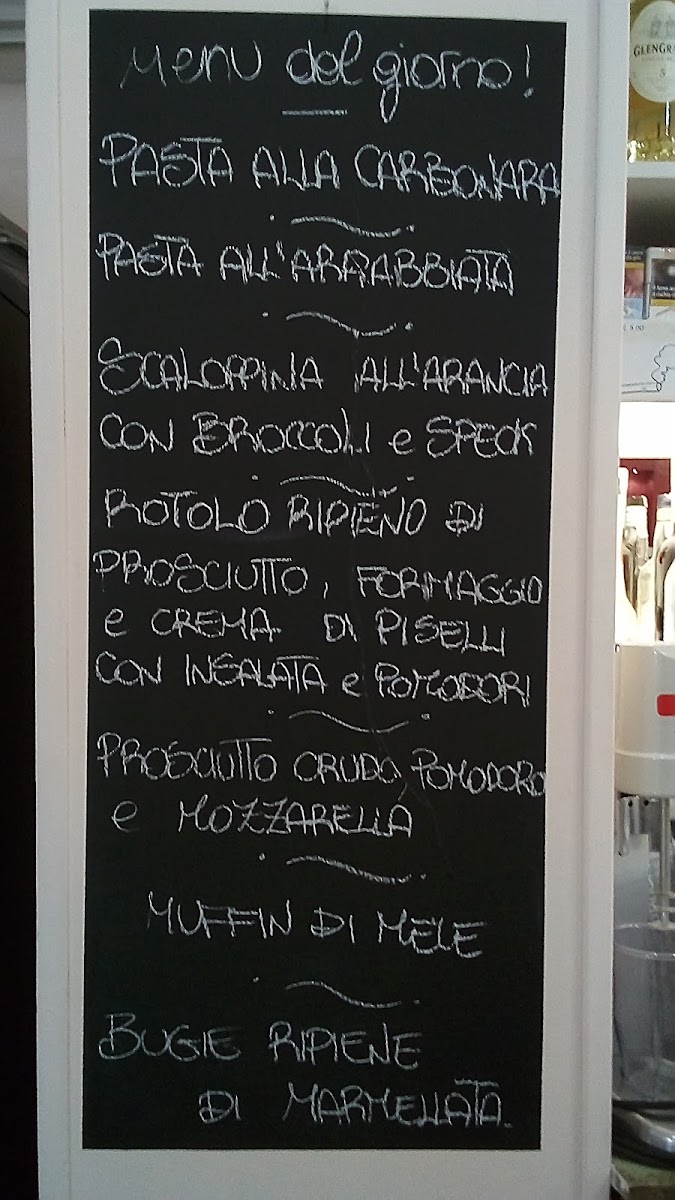 Menu del giorno!
PASTA ALLA CARBONARA
PASTA ALL'ARRABBIATA
SCALOPPINA ALL'ARANCIA
CON BROCCOLI e SPECK
ROTOLO RIPIENO DI
PROSCIUTTO, FORMAGGIO
e CREMA DI PISELLI
CON INSALATA e POMODORI
PROSCIUTTO CRUDO, POMODORO
e MOZZARELLA
MUFFIN DI MELE
BUGIE RIPIENE
DI MARMELLATA